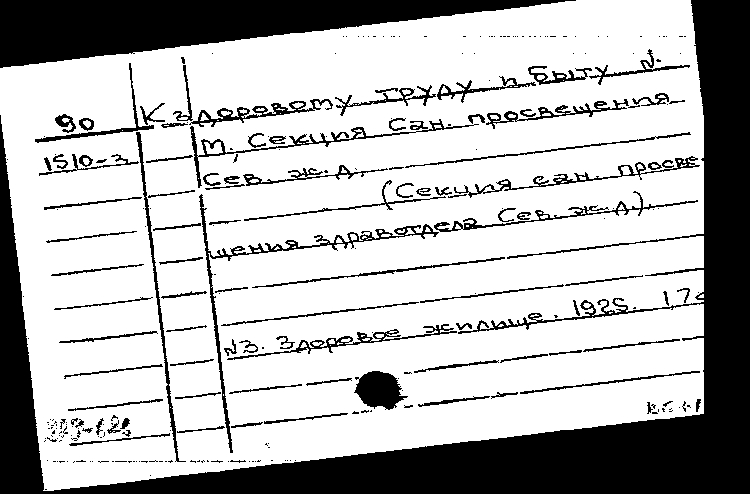 90
К здоровому труду и быту №.
1510-3
М, Секция Сан. просвещения
Сев. ж.д.
(Секция сан. просве-
щения здравотдела Сев. ж.д.).
№3. Здоровое жилище. 1925. 17с